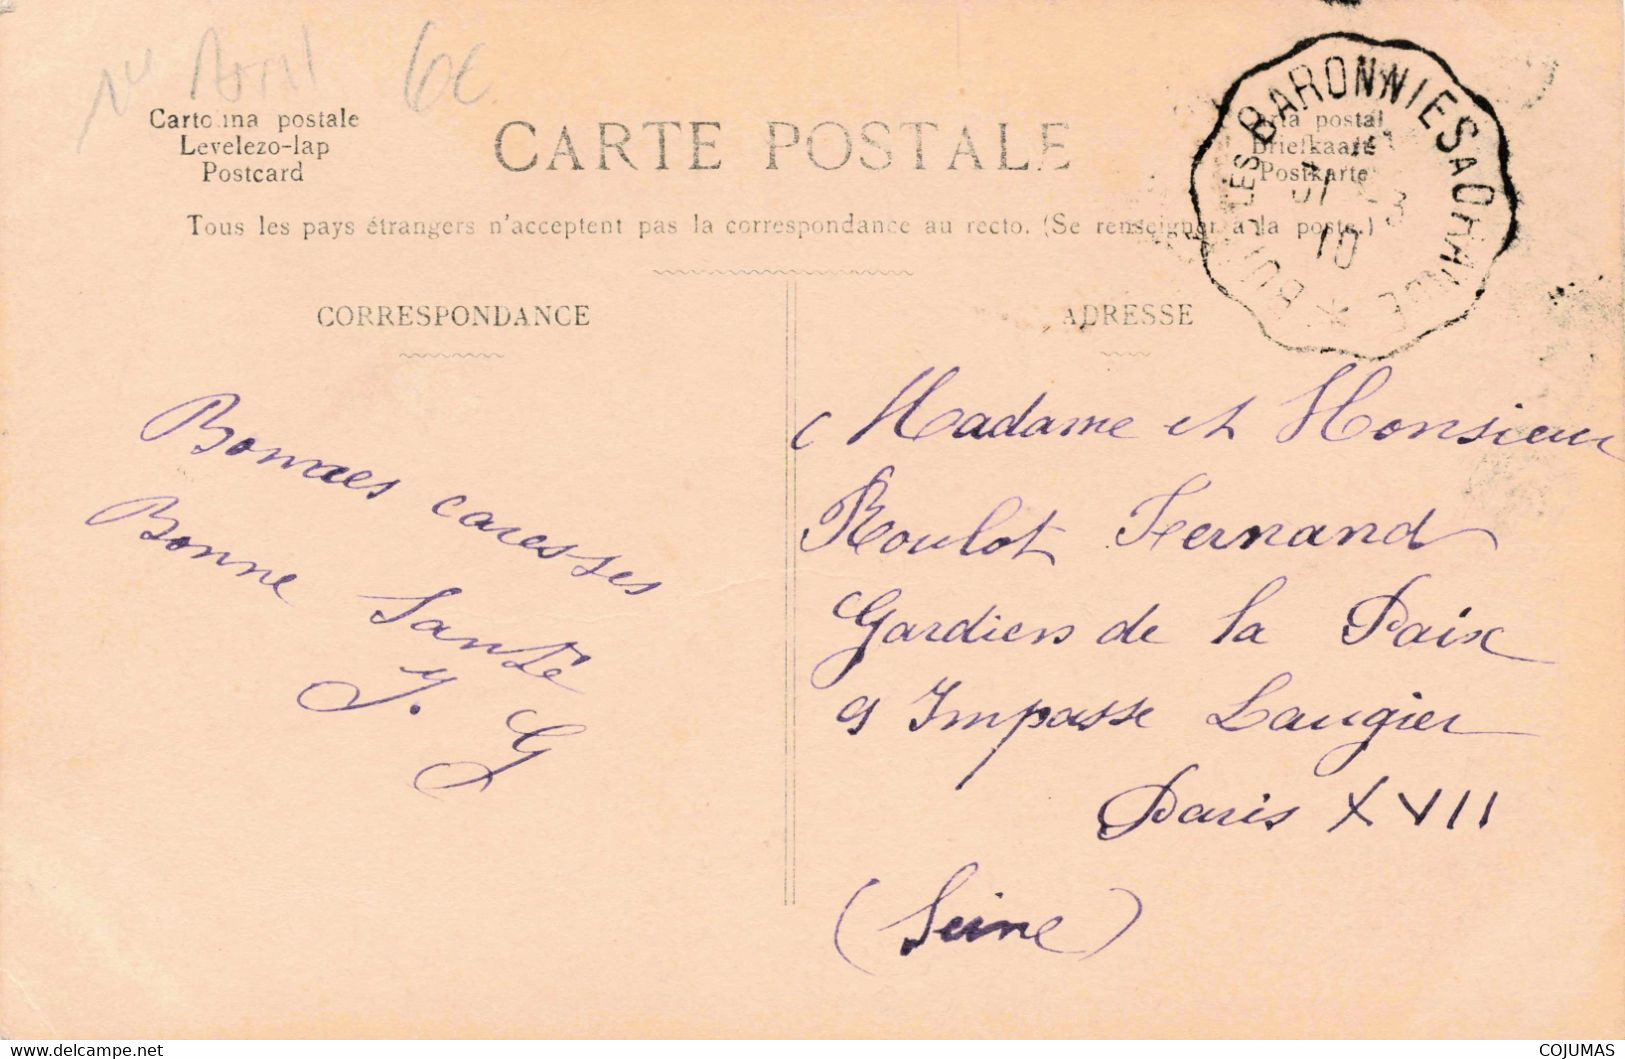 1er Avril 6€
Cartolina postale
Levelezo-lap
Postcard
CARTE POSTALE
Carta postal
Briefkaart
Postkarte
Tous les pays étrangers n'acceptent pas la correspondance au recto. (Se renseigner à la poste.)
BUIS LES BARONNIES A ORANGE
31 3
10
CORRESPONDANCE
ADRESSE
Bonnes caresses
Bonne Santé
J. G
Madame et Monsieur
Roulot Fernand
Gardiens de la Paix
9 Impasse Laugier
Paris XVII
(Seine)
delcampe.net
COJUMAS